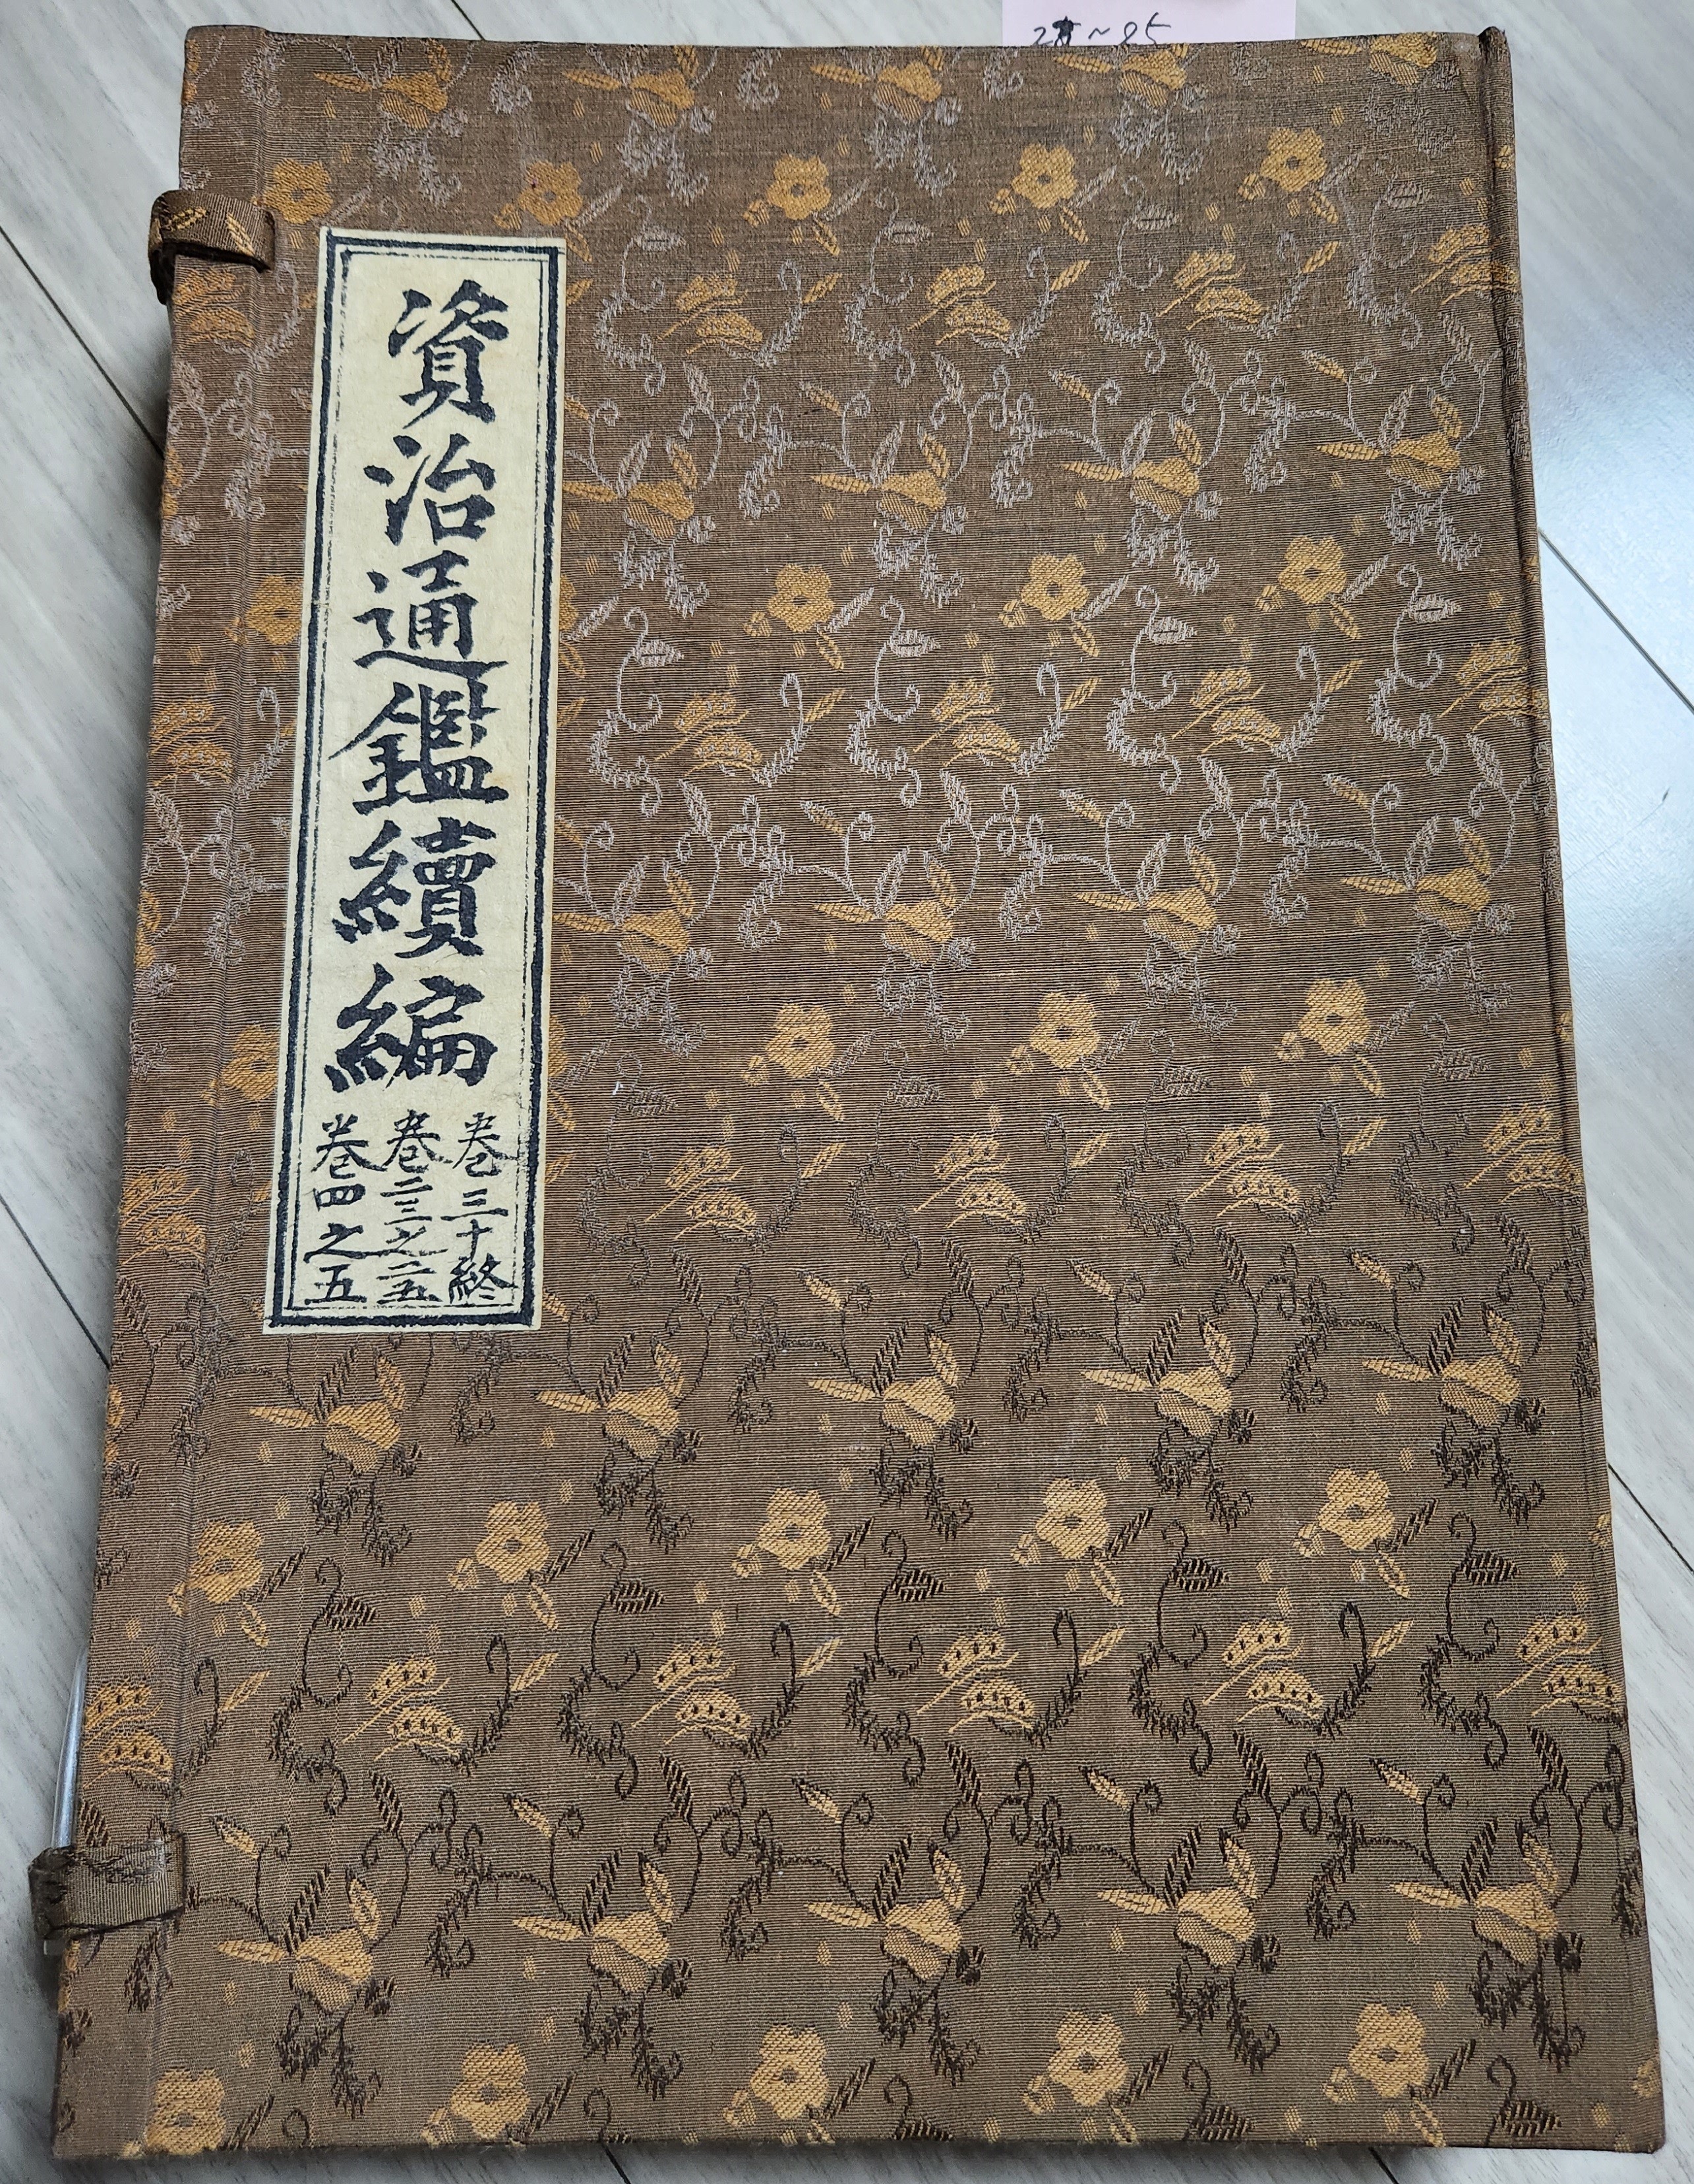 資治通鑑續編
卷三十終
卷二三之二五
卷四之五